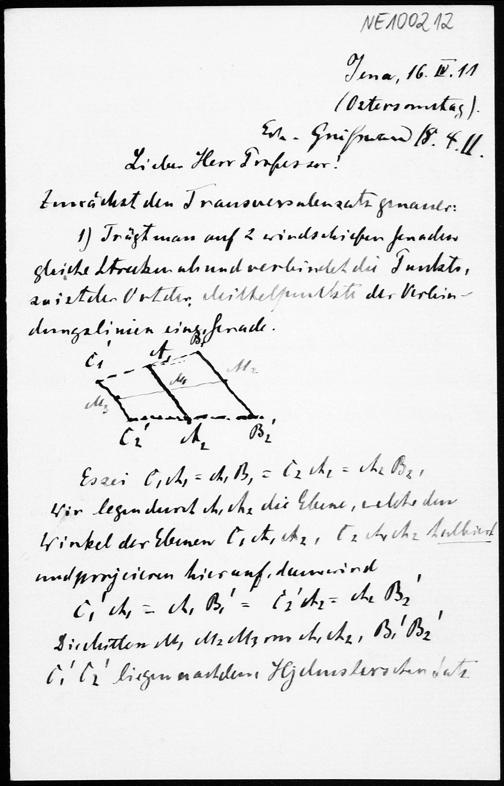 NE100212
Jena, 16. IV. 11
(Ostersamstag).
18. 4. 11.
Lieber Herr Professor!
Zunächst den Transversalensatz genauer:
1) Trägt man auf 2 windschiefen Geraden
gleiche Strecken ab und verbindet die Punkte,
so ist der Ort der Mittelpunkte der Verbin-
dungslinien eine Gerade.
C₁' A₁ B₁'
M₃ M₁ M₂
C₂' A₂ B₂'
Es sei C₁A₁ = A₁B₁ = C₂A₂ = A₂B₂,
Wir legen durch A₁A₂ die Ebene, welche den
Winkel der Ebenen C₁A₁A₂, C₂A₁A₂ halbiert
und projicieren hierauf, dann wird
C₁'A₁ = A₁B₁' = C₂'A₂ = A₂B₂'
Die Mitten M₁ M₂ M₃ von A₁A₂, B₁'B₂'
C₁'C₂' liegen nach dem Hjelmslevschen Satz